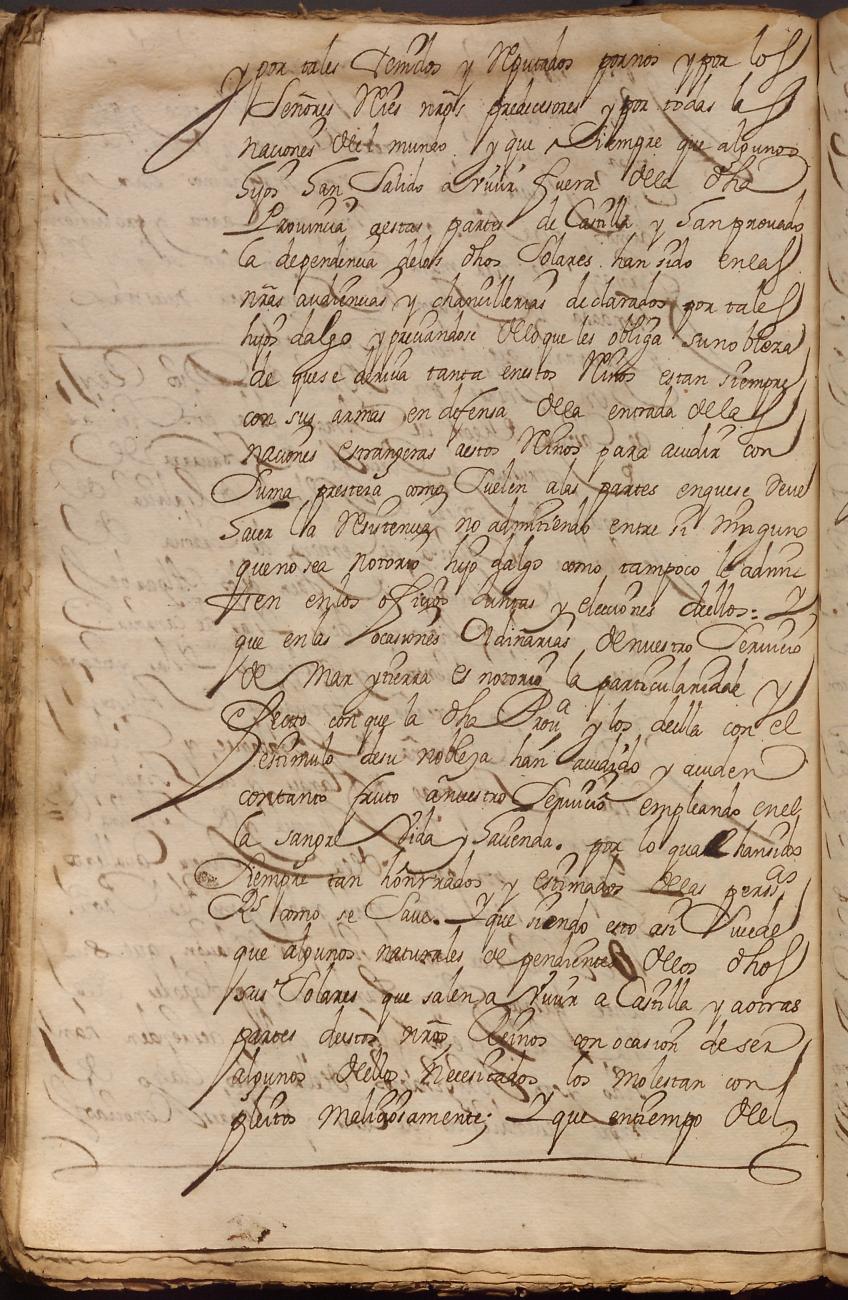 y por tales tenidos y Reputados por nos y por los
Señores Reies nros predecesores y por todas las
naciones del mundo y que Siempre que algunos
hijos han Salido a vivir fuera della dha
Provincia aestas partes de Castilla y han provado
la dependencia delos dhos Solares han sido enlas
nras audiencias y chancillerias declarados por tales
hijos dalgo y preciandose delo que les obliga su nobleza
de que se deriva tanta enestos Reinos estan siempre
con sus armas en defensa dela entrada delas
naciones estrangeras aestos Reinos para acudir con
Suma presteça como Suelen alas partes en que se deve
hacer la Resistencia no admitiendo entre si ninguno
que no sea notorio hijo dalgo como tampoco le admi
ten en los oficios Juntas y elecciones dellos: Y
que en las ocasiones Ordinarias de nuestro Servicio
de Mar y tierra es notorio la particularidad y
afecto con que la dha Prova y los della con el
estimulo de su nobleza han acudido y acuden
con tanto fruto a nuestro Servicio empleando en el
la sangre Vida y hacienda. por lo qual han sido
Siempre tan honrrados y estimados delas personas
Rs como se Save. Y que siendo esto asi Sucede
que algunos naturales dependientes delos dhos
sus Solares que salen a vivir a Castilla y a otras
partes destos nros Reinos con ocasion de ser
algunos dellos necesitados los molestan con
pleitos maliciosamente; Y que entiempo del